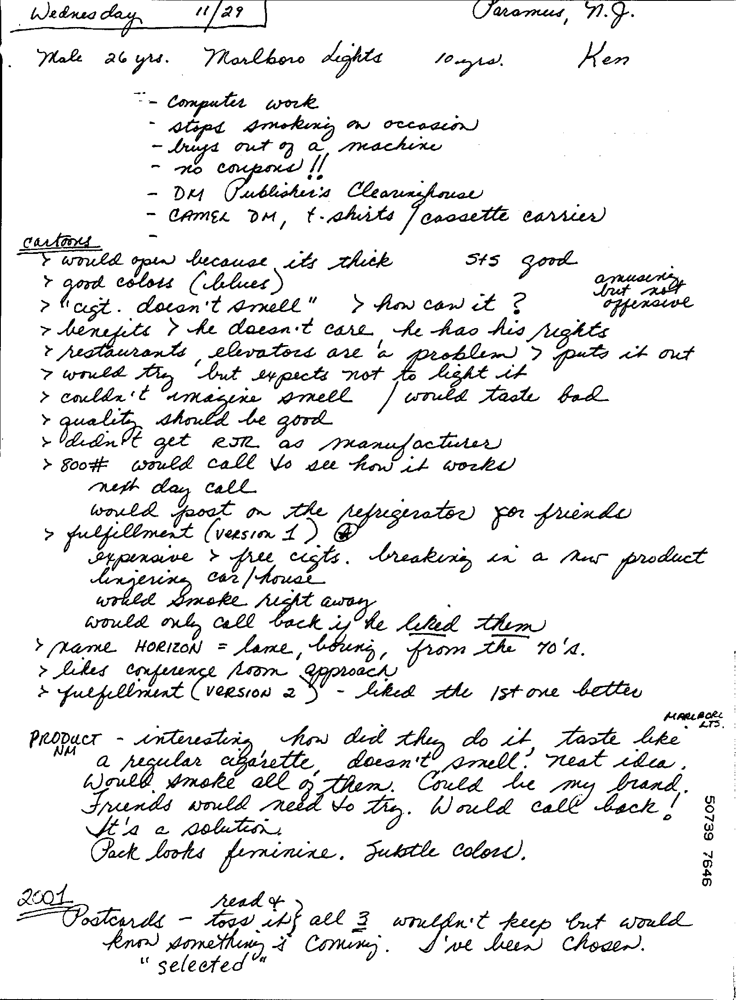 Wednesday 11/29 Paramus, N.J.
Male 26 yrs. Marlboro Lights 10 yrs. Ken
- computer work
- stops smoking on occasion
- buys out of a machine
- no coupons!!
- DM Publisher's Clearinghouse
- CAMEL DM, t-shirts / cassette carrier
-
cartoons
> would open because its thick S+S good
> good colors (blues) amusing but not offensive
> "cigt. doesn't smell" > how can it?
> benefits > he doesn't care, he has his rights
> restaurants, elevators are a problem > puts it out
> would try but expects not to light it
> couldn't imagine smell / would taste bad
> quality should be good
> didn't get RJR as manufacturer
> 800# would call to see how it works
next day call
would post on the refrigerator for friends
> fulfillment (VERSION 1)
expensive > free cigts. breaking in a new product
lingering car/house
would smoke right away
would only call back if he liked them
> name HORIZON = lame, boring, from the 70's.
> likes conference room approach
> fulfillment (VERSION 2) - liked the 1st one better
MARLBORO LTS.
PRODUCT - interesting how did they do it, taste like
NM
a regular cigarette, doesn't smell! neat idea.
Would smoke all of them. Could be my brand.
Friends would need to try. Would call back!
It's a solution.
Pack looks feminine. Subtle colors.
50739 7646
2001
Postcards - read & toss it} all 3 wouldn't keep but would
know something is coming. I've been chosen.
"selected"